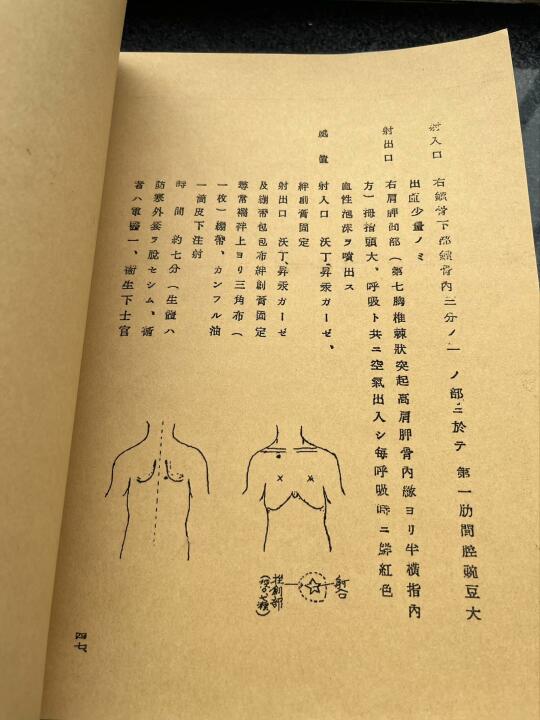 射入口　右鎖骨下部鎖骨內三分ノ一ノ部ニ於テ第一肋間腔豌豆大
出血少量ノミ
射出口　右肩胛間部（第七胸椎棘狀突起高肩胛骨內緣ヨリ半橫指內
方）拇指頭大、呼吸ト共ニ空氣出入シ每呼吸時ニ鮮紅色
血性泡沫ヲ噴出ス
處置　射入口　沃丁、昇汞ガーゼ、
絆創膏固定
射出口　沃丁、昇汞ガーゼ
及繃帶包包布絆創膏固定
尋常襦袢上ヨリ三角布（
一枚）繃帶、カンフル油
一筒皮下注射
時間　約七分（生徒ハ
防寒外套ヲ脫セシム、術
者ハ軍醫一、衞生下士官
射入口
挫創部
四七